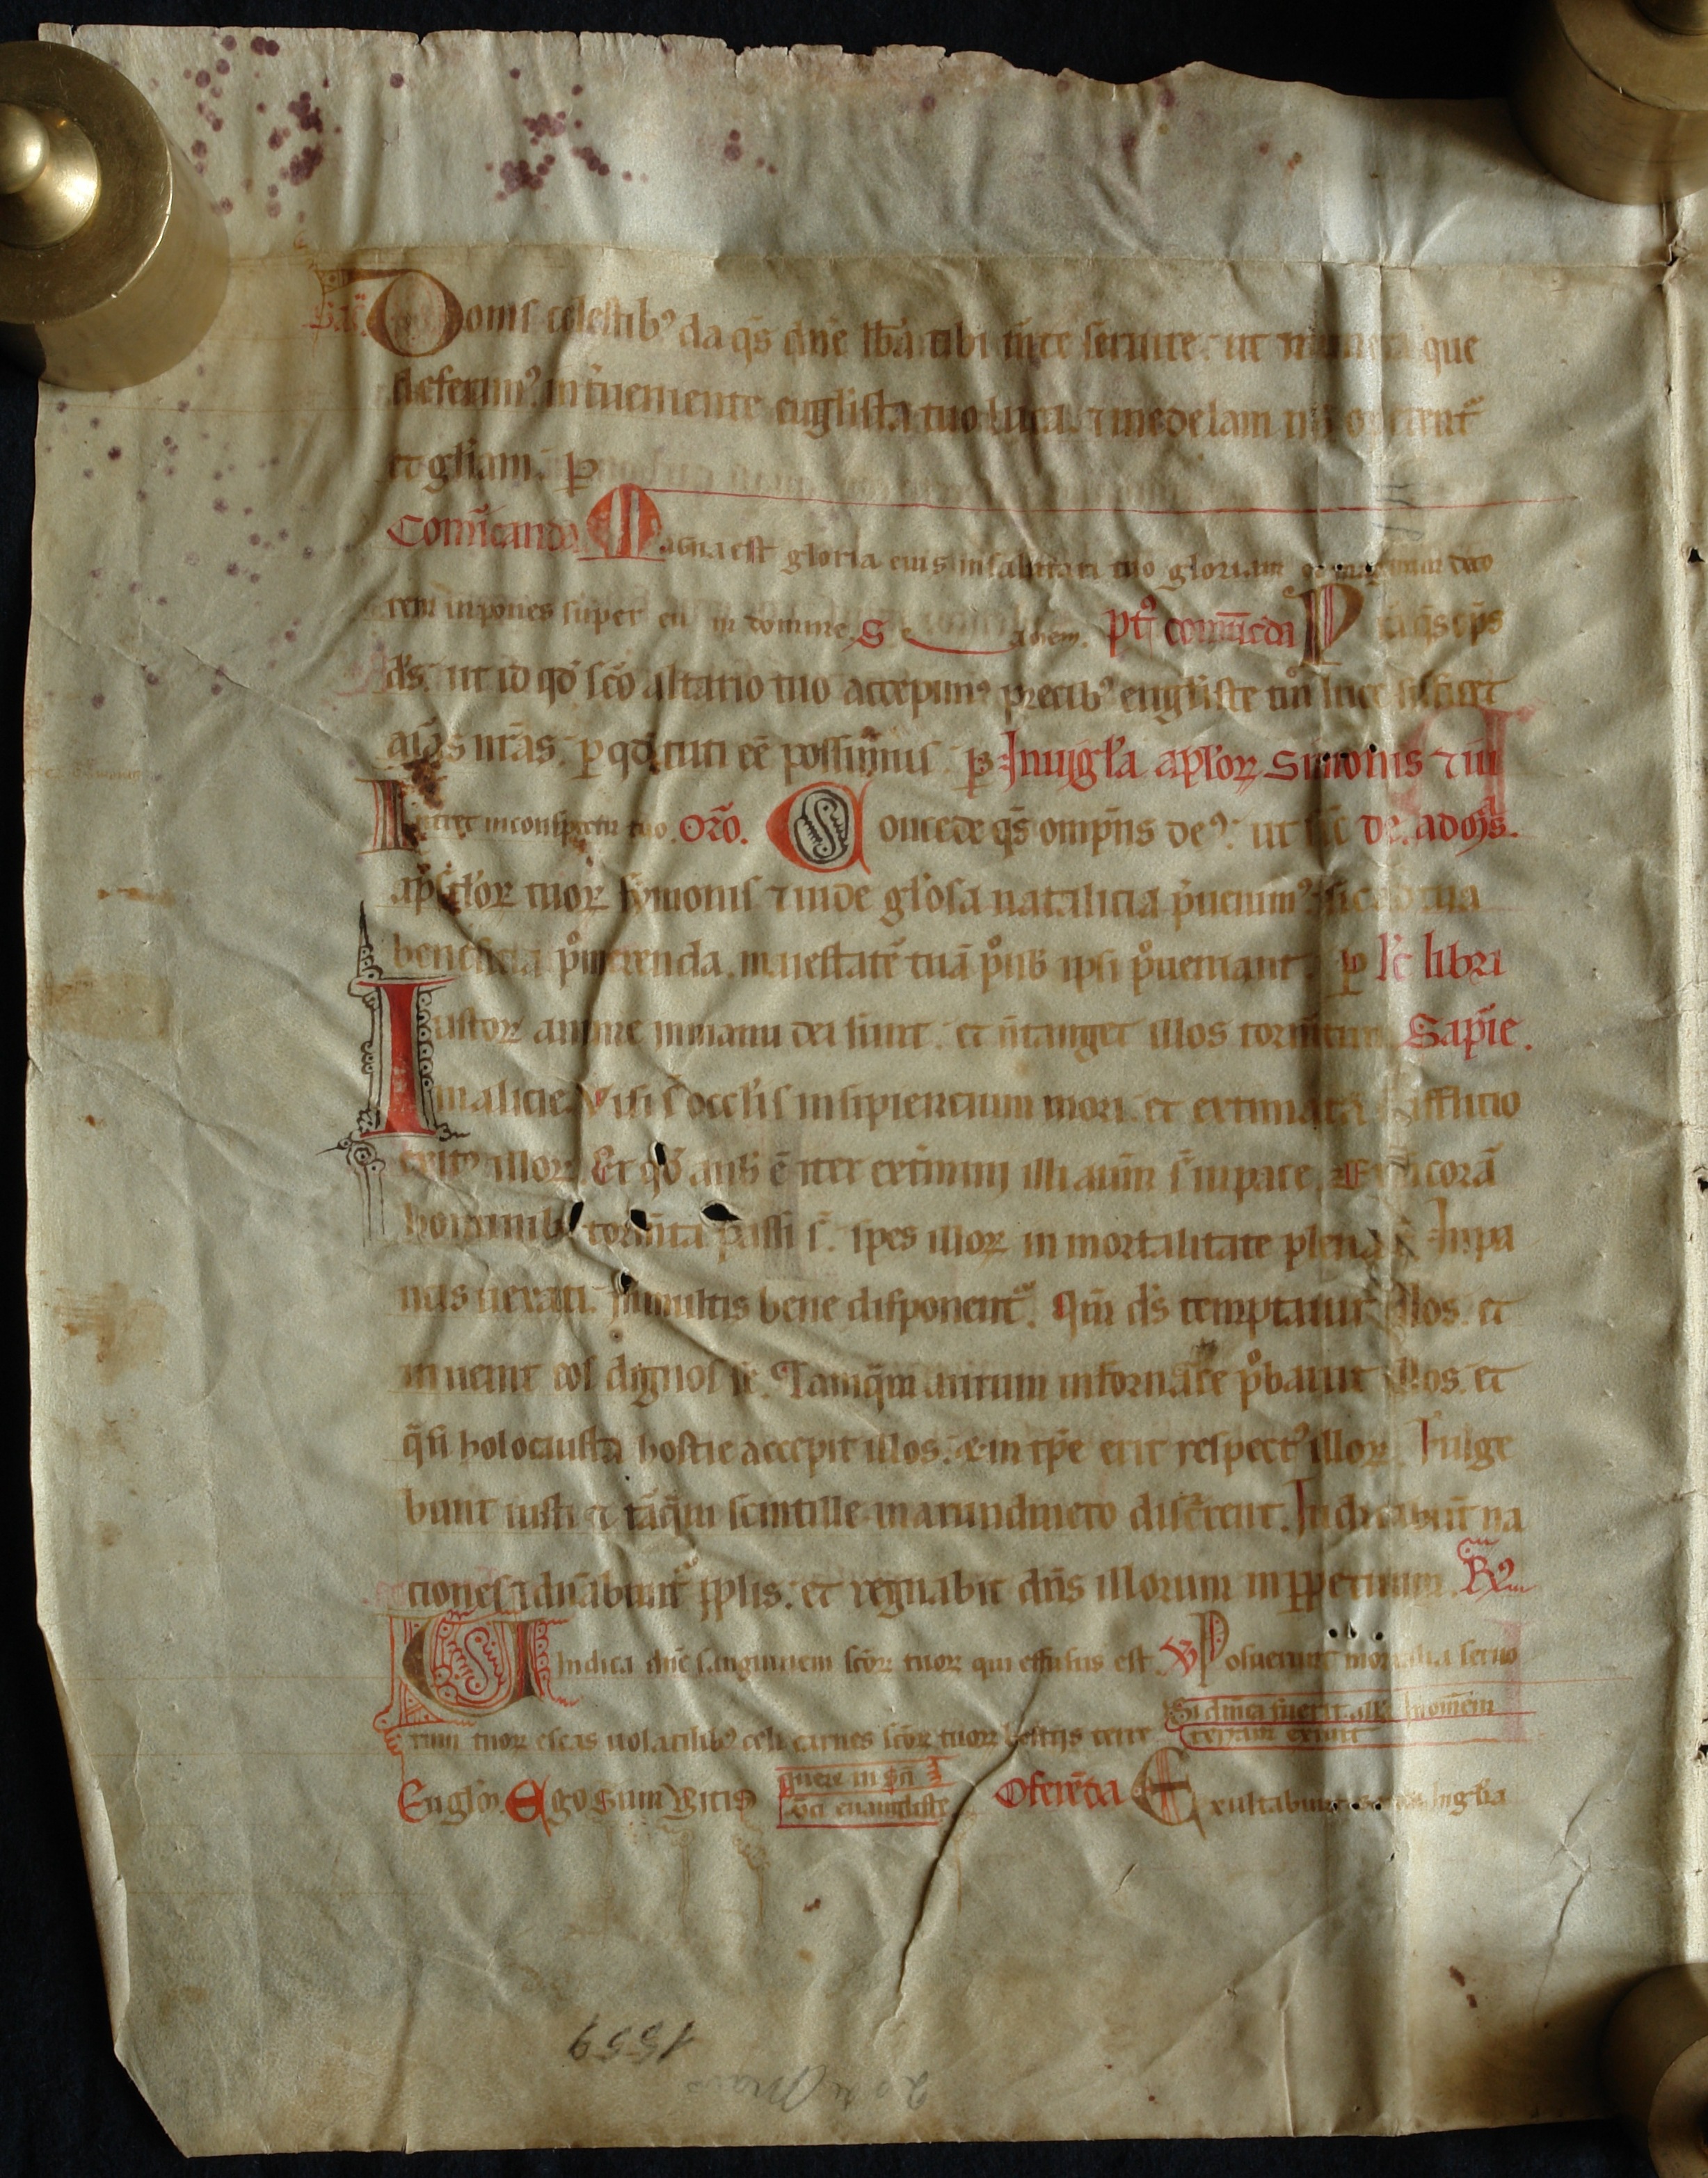 Sac̄. Donis celestib⁹ da q̄s dn̄e lib̄a tibi m̄te seruire. ut munera que
deferim⁹. int̄ueniente euḡlista tuo luca. ⁊ medelam nob̄ op̄erent᷑
et gl̄iam. ꝑ
Com̄icanda Magna est gloria eius in salutari tuo gloriam et magnum deco
rem inpones super eū domine. Pt⁹ com̄ūcda P̄ta q̄s om̄ps
ds̄. ut id qd̄ sc̄o altario tuo accepim⁹ precib⁹ euḡliste tui luce sc̄ificet
aīas nr̄as. ꝑ qd̄ tuti eē possimus. ꝑ In uigl̄a ap̄lorꝝ Simonis ⁊ iu
Intret in conspectu tuo. Or̄o. Concede q̄s omp̄ns de⁹. ut sic de. ad oīs.
ap̄s̄tlorꝝ tuorꝝ symonis ⁊ iude gl̄osa natalicia p̄uenim⁹. sic ad tua
beneficia ꝓmerenda. maiestatē tuā ꝓ nob̄ ipsi p̄ueniant. ꝑ Lc̄ libri
Iustorꝝ anime in manu dei sunt. et n̄ tanget illos torm̄tum Sapīe.
malicie. Visi s̄ occl̄is insipiencium mori. et extimata ē afflicio
exit⁹ illorꝝ. Et qd̄ a nob̄ ē iter exterminij illi aūm s̄ in pace. Et si corā
hominib⁹ torm̄ta passi s̄. spes illorꝝ in mortalitate plena ē. In pa
ucis uexati. in multis bene disponent᷑. Qm̄ ds̄ temptauit illos. et
inuenit eos dignos se. Tamq̄m aurum in fornace ꝓbauit illos. et
q̄si holocausta hostie accepit illos. ⁊ in tp̄e erit respect⁹ illorꝝ. Fulge
bunt iusti et tāq̄m scintille in arundineto discr̄rent. Iudicabunt na
ciones ⁊ dn̄abunt᷑ ppl̄is. et regnabit dn̄s illorum in ꝑpetuum. R̄m
Vindica dn̄e sanguinem sc̄orꝝ tuorꝝ qui effusus est. V̄ Posuerunt mortalia seruo
rum tuorꝝ escas uolatilib⁹ celi carnes sc̄orꝝ tuorꝝ bestijs terre Si dn̄ica fuerit all̄a
Eugl̄m. Ego sum vitis quere in
sc̄i euangliste Oferēda Exultabunt sancti In gl̄ia
1559